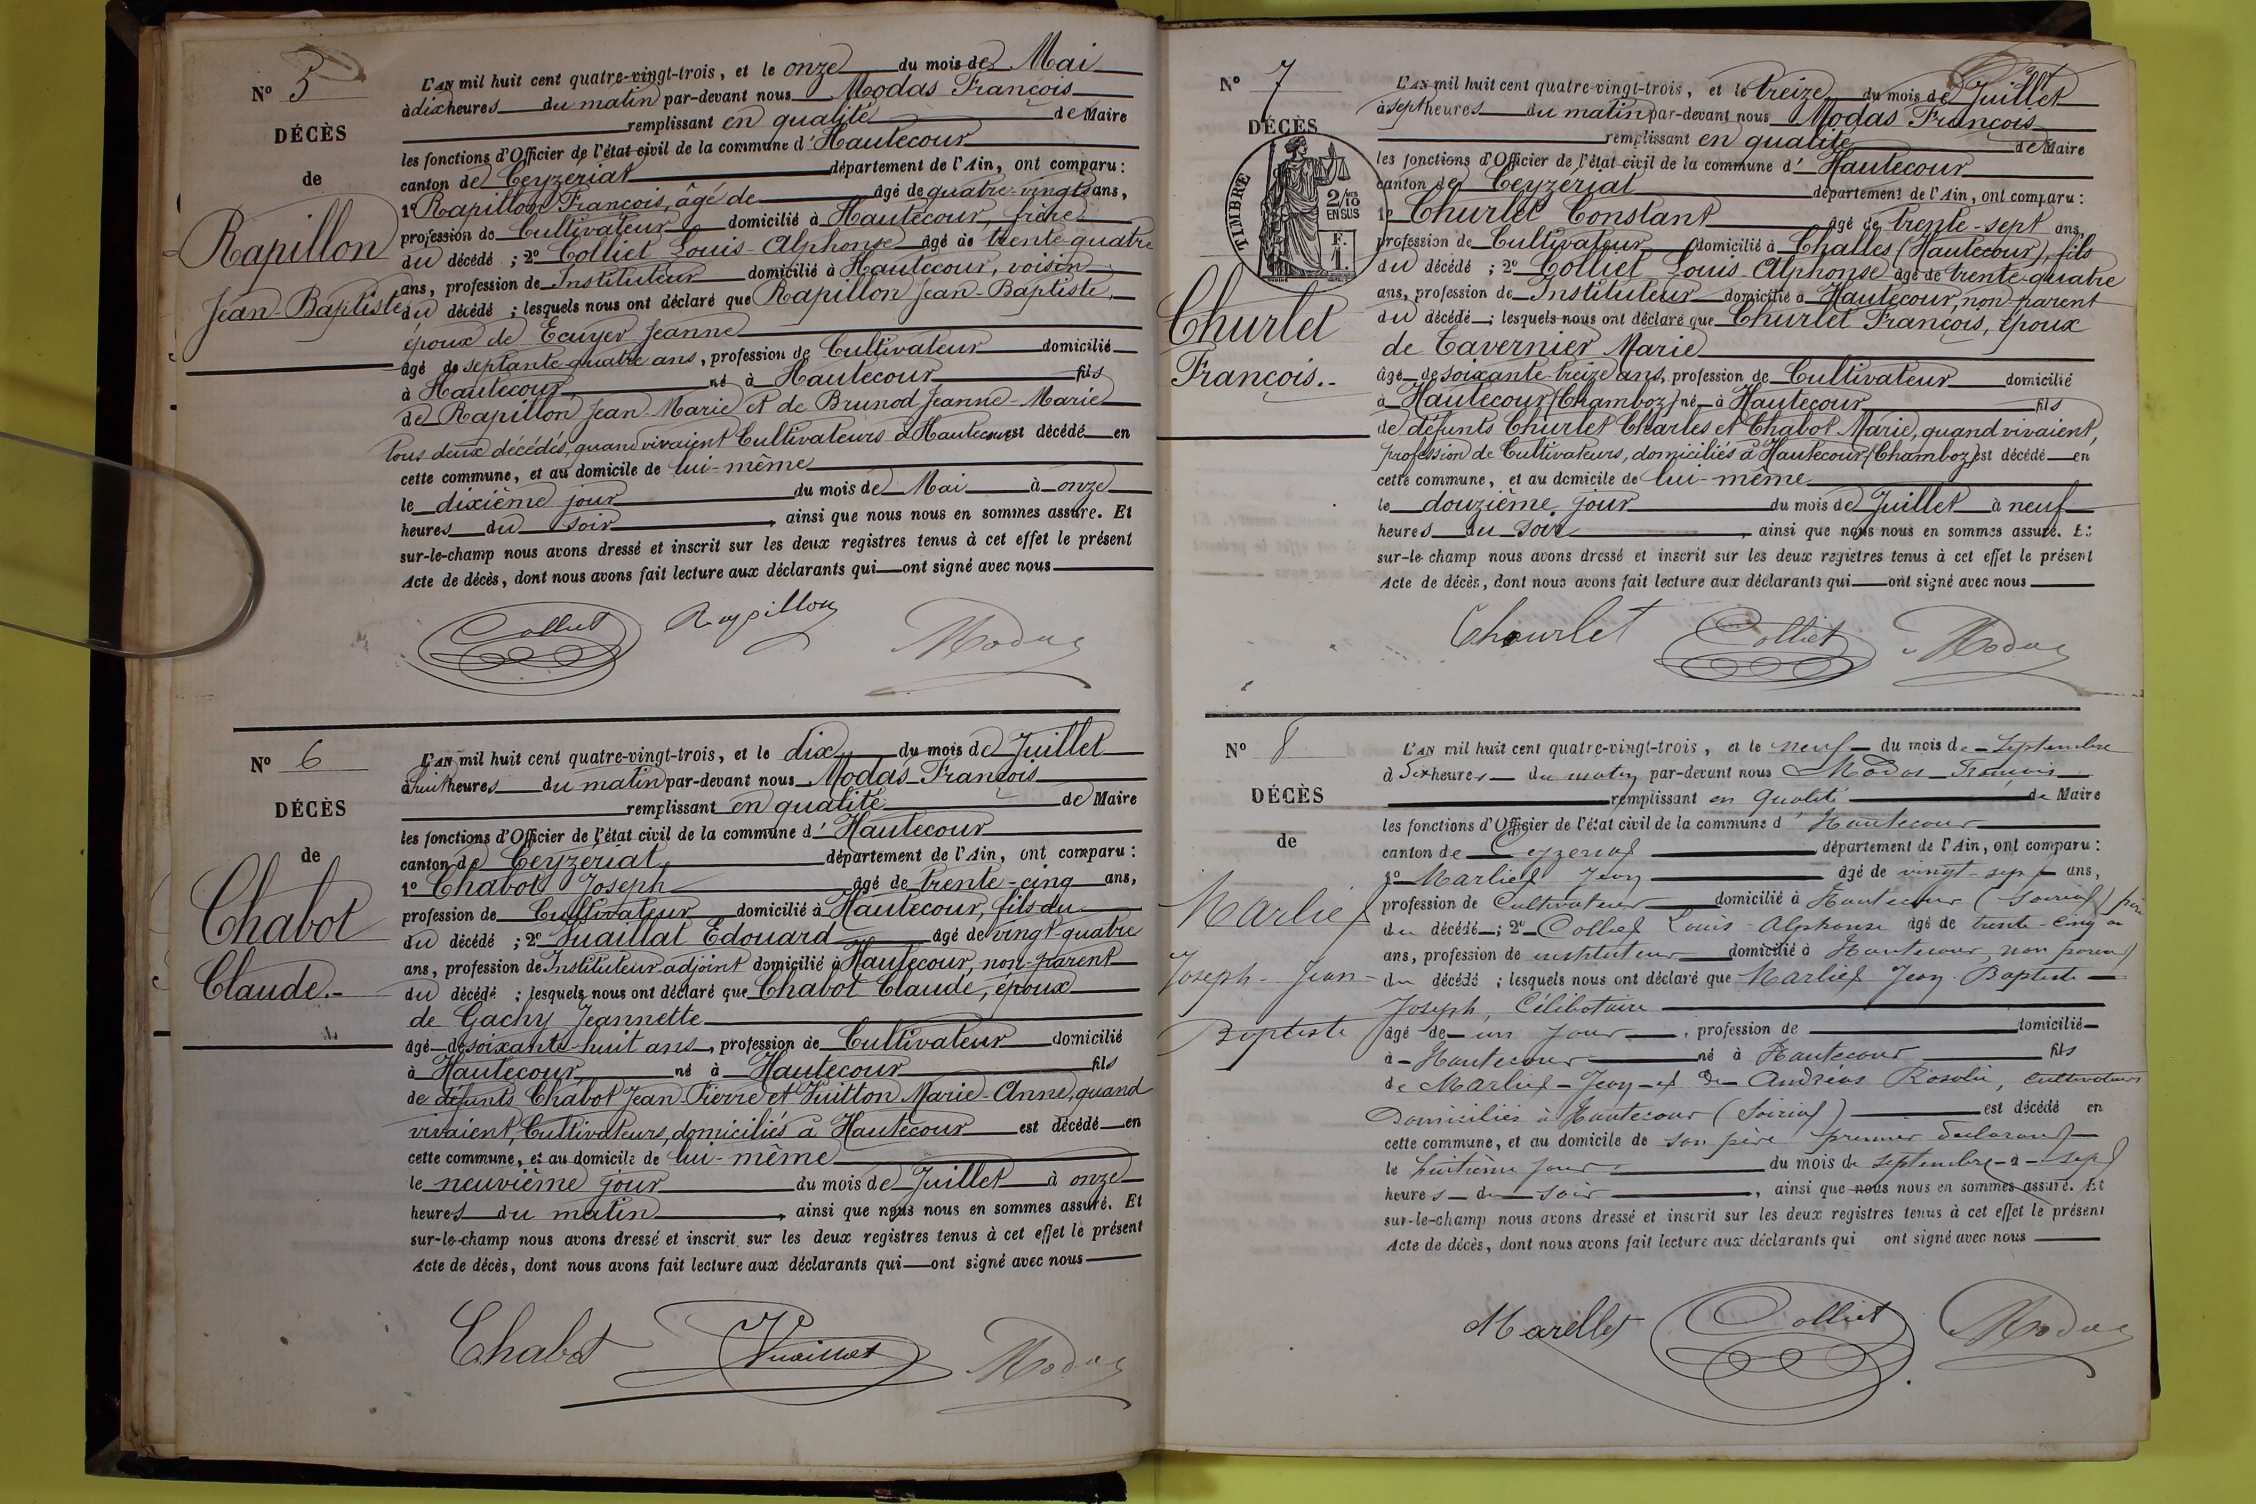 N° 5
DÉCÈS
de
Rapillon
Jean-Baptiste
L'AN mil huit cent quatre-vingt-trois, et le onze du mois de Mai
à dix heures du matin par-devant nous Modas François
remplissant en qualité de Maire
les fonctions d'Officier de l'état civil de la commune d'Hautecour
canton de Ceyzeriat département de l'Ain, ont comparu :
1° Rapillon François, âgé de âgé de quatre-vingts ans,
profession de Cultivateur domicilié à Hautecour, frère
du décédé ; 2° Colliet Louis-Alphonse âgé de trente-quatre
ans, profession de Instituteur domicilié à Hautecour, voisin
du décédé ; lesquels nous ont déclaré que Rapillon Jean-Baptiste,
époux de Ecuyer Jeanne
âgé de septante-quatre ans, profession de Cultivateur domicilié
à Hautecour né à Hautecour fils
de Rapillon Jean-Marie et de Brunod Jeanne-Marie
tous deux décédés, quand vivaient Cultivateurs à Hautecour est décédé en
cette commune, et au domicile de lui-même
le dixième jour du mois de Mai à onze
heures du soir, ainsi que nous nous en sommes assuré. Et
sur-le-champ nous avons dressé et inscrit sur les deux registres tenus à cet effet le présent
Acte de décès, dont nous avons fait lecture aux déclarants qui ont signé avec nous
Colliet Rapillon Modas
N° 6
DÉCÈS
de
Chabot
Claude.-
L'AN mil huit cent quatre-vingt-trois, et le dix du mois de Juillet
à huit heures du matin par-devant nous Modas François
remplissant en qualité de Maire
les fonctions d'Officier de l'état civil de la commune d'Hautecour
canton de Ceyzeriat département de l'Ain, ont comparu :
1° Chabot Joseph âgé de trente-cinq ans,
profession de Cultivateur domicilié à Hautecour, fils du
du décédé ; 2° Vuaillat Edouard âgé de vingt-quatre
ans, profession de Instituteur adjoint domicilié à Hautecour, non-parent
du décédé ; lesquels nous ont déclaré que Chabot Claude, époux
de Gachy Jeannette
âgé de soixante-huit ans, profession de Cultivateur domicilié
à Hautecour né à Hautecour fils
de défunts Chabot Jean-Pierre et Vuitton Marie-Anne, quand
vivaient, Cultivateurs, domiciliés à Hautecour est décédé en
cette commune, et au domicile de lui-même
le neuvième jour du mois de Juillet à onze
heures du matin, ainsi que nous nous en sommes assuré. Et
sur-le-champ nous avons dressé et inscrit sur les deux registres tenus à cet effet le présent
Acte de décès, dont nous avons fait lecture aux déclarants qui ont signé avec nous
Chabot Vuaillat Modas
N° 7
DÉCÈS
TIMBRE
2/10
EN SUS
F.
1.
Churlet
François.-
L'AN mil huit cent quatre-vingt-trois, et le treize du mois de Juillet
à sept heures du matin par-devant nous Modas François
remplissant en qualité de Maire
les fonctions d'Officier de l'état civil de la commune d'Hautecour
canton de Ceyzeriat département de l'Ain, ont comparu :
1° Churlet Constant âgé de trente-sept ans,
profession de Cultivateur domicilié à Challes (Hautecour), fils
du décédé ; 2° Colliet Louis-Alphonse âgé de trente-quatre
ans, profession de Instituteur domicilié à Hautecour, non-parent
du décédé ; lesquels nous ont déclaré que Churlet François, époux
de Tavernier Marie
âgé de soixante-treize ans, profession de Cultivateur domicilié
à Hautecour (Chamboz) né à Hautecour fils
de défunts Churlet Charles et Chabot Marie, quand vivaient,
profession de Cultivateurs, domiciliés à Hautecour (Chamboz) est décédé en
cette commune, et au domicile de lui-même
le douzième jour du mois de Juillet à neuf
heures du soir, ainsi que nous nous en sommes assuré. Et
sur-le-champ nous avons dressé et inscrit sur les deux registres tenus à cet effet le présent
Acte de décès, dont nous avons fait lecture aux déclarants qui ont signé avec nous
Chourlet Colliet Modas
N° 8
DÉCÈS
de
Marliet
Joseph-Jean-
Baptiste
L'AN mil huit cent quatre-vingt-trois, et le neuf du mois de Septembre
à dix heures du matin par-devant nous Modas François
remplissant en qualité de Maire
les fonctions d'Officier de l'état civil de la commune d'Hautecour
canton de Ceyzeriat département de l'Ain, ont comparu :
1° Marliet Jean âgé de vingt-sept ans,
profession de Cultivateur domicilié à Hautecour (Soiriat) père
du décédé ; 2° Colliet Louis-Alphonse âgé de trente-cinq
ans, profession de instituteur domicilié à Hautecour, non parent
du décédé ; lesquels nous ont déclaré que Marliet Jean Baptiste
Joseph, Célibataire
âgé de un jour, profession de domicilié
à Hautecour né à Hautecour fils
de Marliet Jean et de Andréas Rosalie, cultivateurs
Domiciliés à Hautecour (Soiriat) est décédé en
cette commune, et au domicile de son père premier déclarant
le huitième jour du mois de septembre à sept
heures du soir, ainsi que nous nous en sommes assuré. Et
sur-le-champ nous avons dressé et inscrit sur les deux registres tenus à cet effet le présent
Acte de décès, dont nous avons fait lecture aux déclarants qui ont signé avec nous
Marellet Colliet Modas